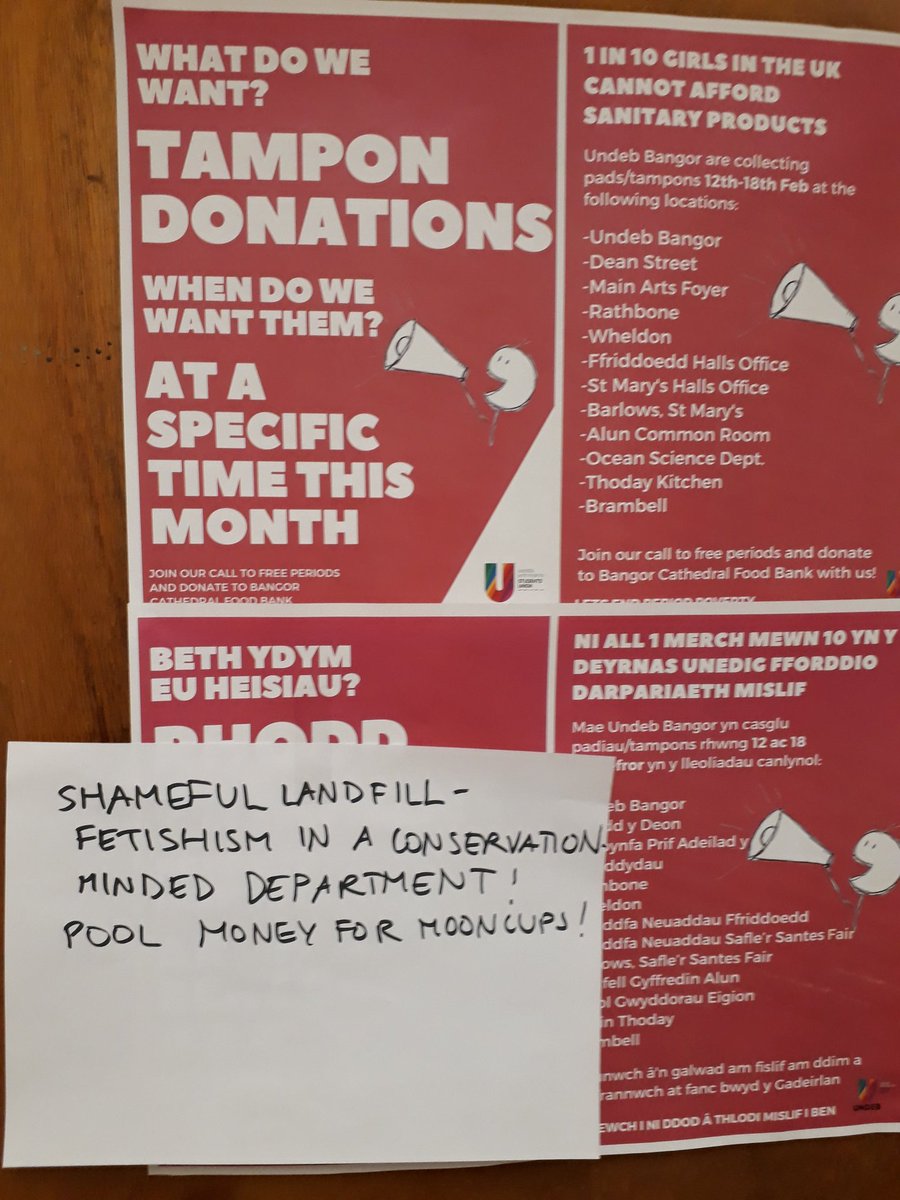 WHAT DO WE
WANT?
TAMPON
DONATIONS
WHEN DO WE
WANT THEM?
AT A
SPECIFIC
TIME THIS
MONTH
JOIN OUR CALL TO FREE PERIODS
AND DONATE TO BANGOR
CATHEDRAL FOOD BANK
1 IN 10 GIRLS IN THE UK
CANNOT AFFORD
SANITARY PRODUCTS
Undeb Bangor are collecting
pads/tampons 12th-18th Feb at the
following locations:
-Undeb Bangor
-Dean Street
-Main Arts Foyer
-Rathbone
-Wheldon
-Ffriddoedd Halls Office
-St Mary's Halls Office
-Barlows, St Mary's
-Alun Common Room
-Ocean Science Dept.
-Thoday Kitchen
-Brambell
Join our call to free periods and donate
to Bangor Cathedral Food Bank with us!
LETS END PERIOD POVERTY
BETH YDYM
EU HEISIAU?
RHODD
NI ALL 1 MERCH MEWN 10 YN Y
DEYRNAS UNEDIG FFORDDIO
DARPARIAETH MISLIF
Mae Undeb Bangor yn casglu
padiau/tampons rhwng 12 ac 18
fror yn y lleoliadau canlynol:
eb Bangor
d y Deon
ynfa Prif Adeilad y
ddydau
nbone
eldon
ddfa Neuaddau Ffriddoedd
ddfa Neuaddau Safle'r Santes Fair
ows, Safle'r Santes Fair
fell Gyffredin Alun
ol Gwyddorau Eigion
in Thoday
mbell
nwch â'n galwad am fislif am ddim a
rannwch at fanc bwyd y Gadeirlan
EWCH I NI DDOD Â THLODI MISLIF I BEN
UNDEB
SHAMEFUL LANDFILL-
FETISHISM IN A CONSERVATION-
MINDED DEPARTMENT!
POOL MONEY FOR MOONCUPS!